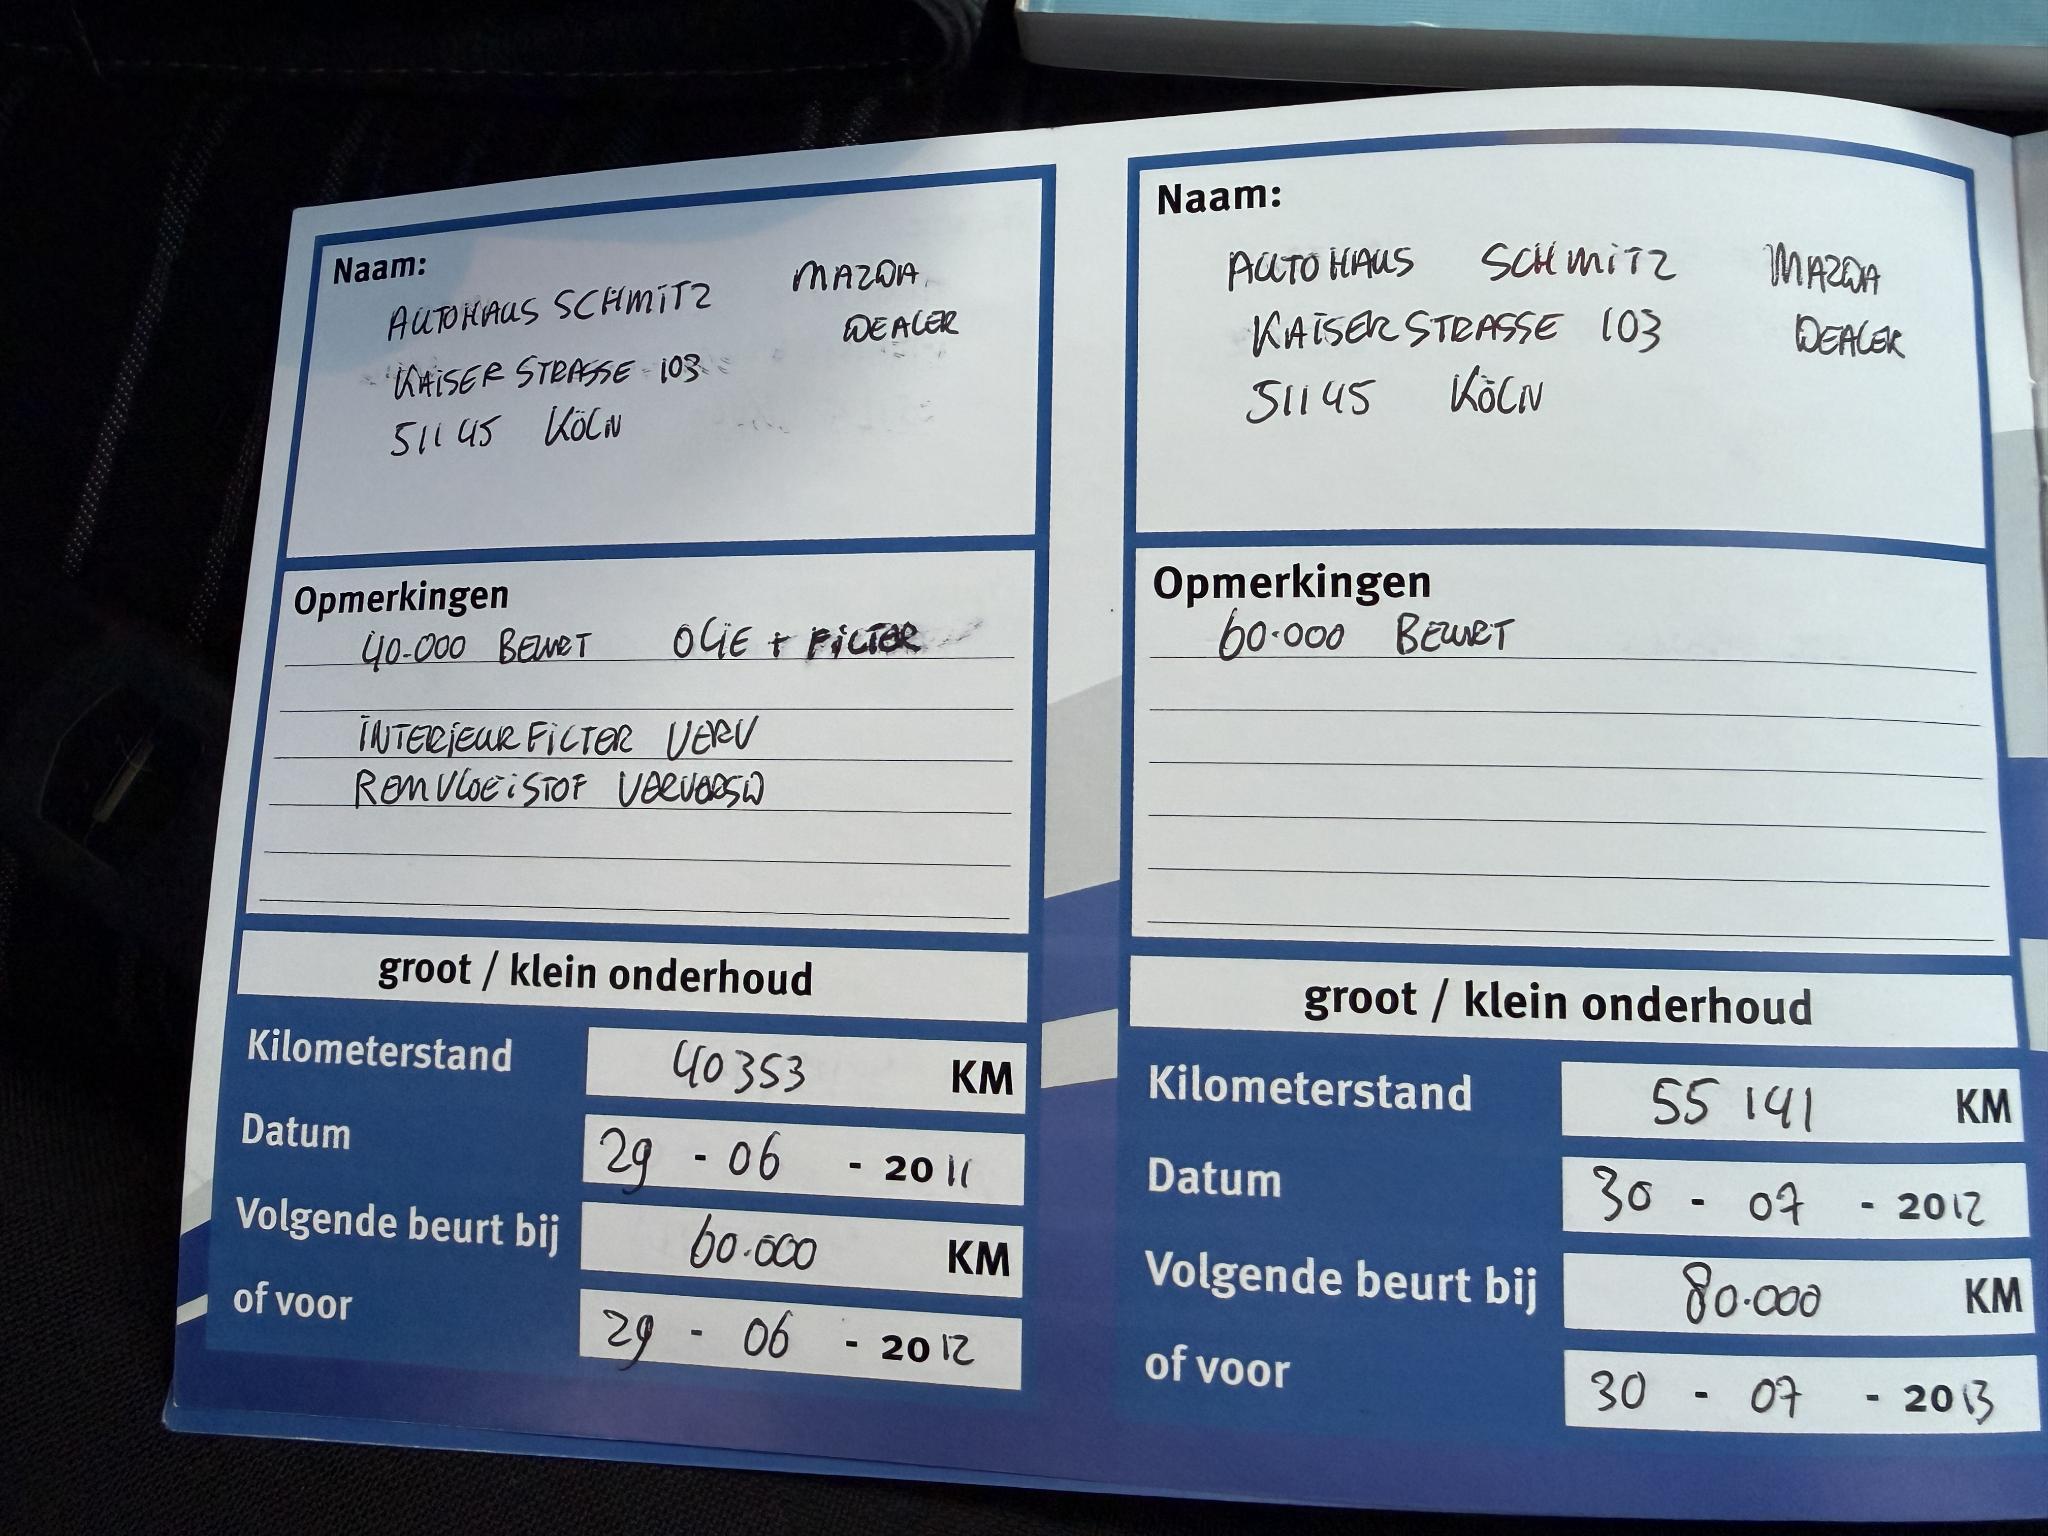 Naam:
AUTOHAUS SCHMITZ MAZDA
DEALER
KAISER STRASSE 103
51145 KÖLN
Opmerkingen
40.000 BEURT OLIE + FILTER
INTERIEUR FILTER VERV
REMVLOEISTOF
groot / klein onderhoud
Kilometerstand 40353 KM
Datum 29 - 06 - 2011
Volgende beurt bij 60.000 KM
of voor 29 - 06 - 2012
Naam:
AUTOHAUS SCHMITZ MAZDA
KAISER STRASSE 103 DEALER
51145 KÖLN
Opmerkingen
60.000 BEURT
groot / klein onderhoud
Kilometerstand 55 141 KM
Datum 30 - 07 - 2012
Volgende beurt bij 80.000 KM
of voor 30 - 07 - 2013